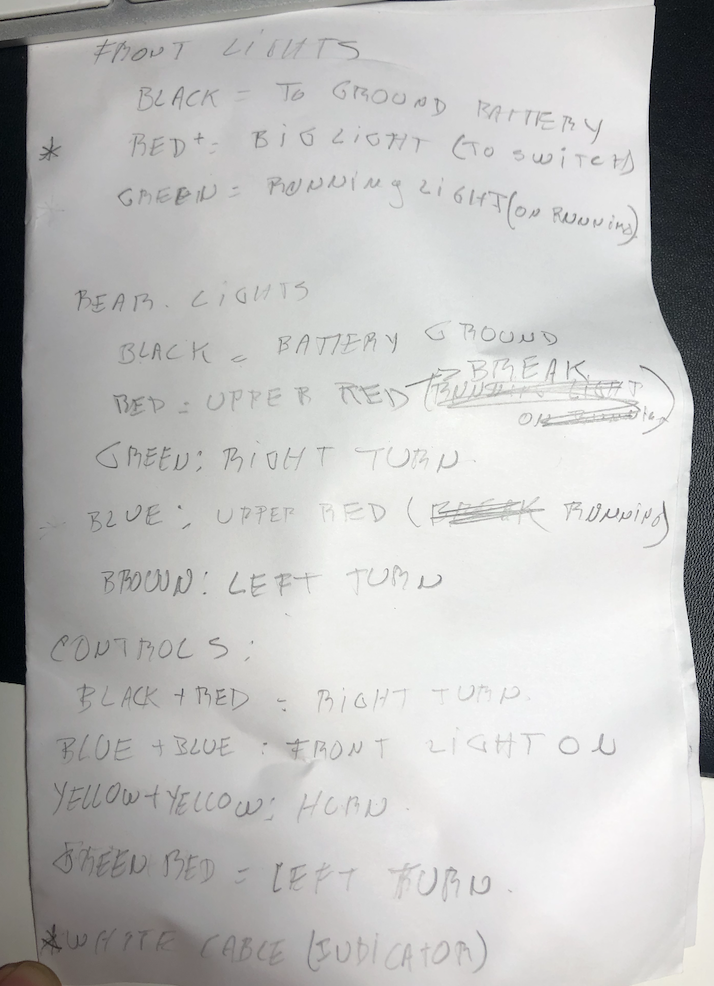 FRONT LIGHTS
BLACK = TO GROUND BATTERY
* RED+ = BIG LIGHT (TO SWITCH)
GREEN = RUNNING LIGHT (ON RUNNING)
REAR. LIGHTS
BLACK = BATTERY GROUND
→ BREAK
RED = UPPER RED (RUNNING LIGHT
ON RUNNING)
GREEN: RIGHT TURN
BLUE: UPPER RED (BREAK RUNNING)
BROWN: LEFT TURN
CONTROLS:
BLACK + RED = RIGHT TURN.
BLUE + BLUE : FRONT LIGHT ON
YELLOW+YELLOW: HORN.
GREEN RED = LEFT TURN.
* WHITE CABLE (INDICATOR)